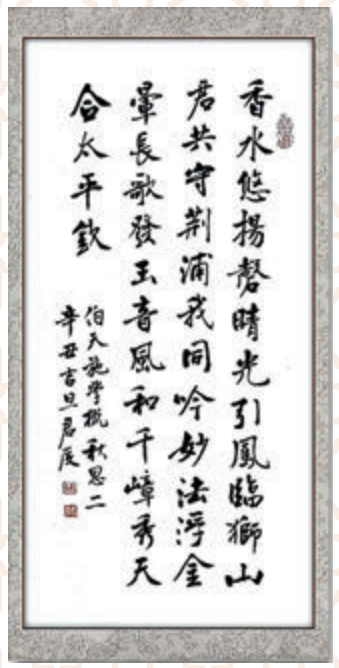 香水悠揚磬晴光引鳳臨獅山
君共守荆浦我同吟妙法浮金
暈長歌發玉音風和千嶂秀天
合太平欽
伯天施学概秋思二
辛丑吉旦君辰